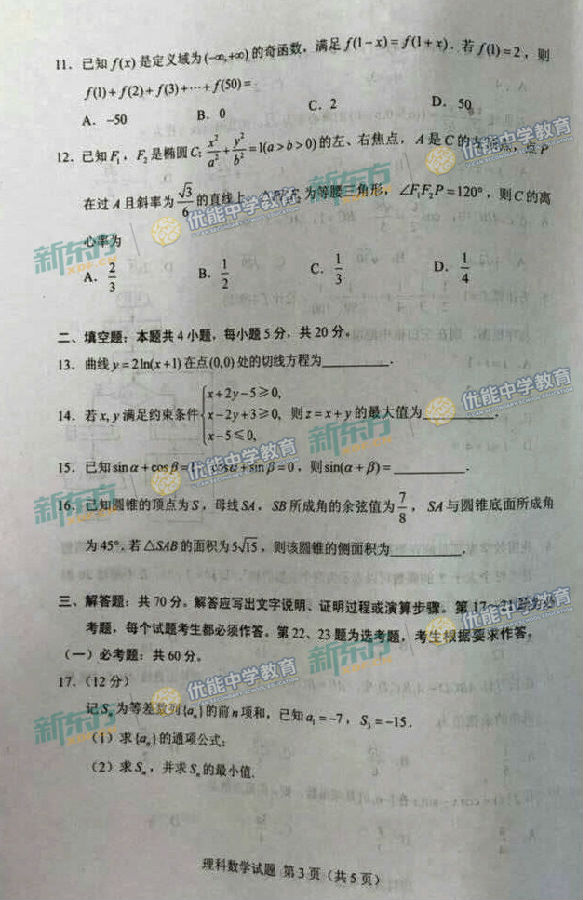 11. 已知 f(x) 是定义域为(-∞,+∞)的奇函数，满足 f(1-x)=f(1+x). 若 f(1)=2，则
f(1)+f(2)+f(3)+…+f(50)=
A. -50 B. 0 C. 2 D. 50
12. 已知 F₁，F₂ 是椭圆 C: x²/a²+y²/b²=1(a>b>0) 的左、右焦点，A 是 C 的 顶点，点 P
在过 A 且斜率为 √3/6 的直线上， F₂ 为等腰三角形，∠F₁F₂P=120°，则 C 的离
心率为
A. 2/3 B. 1/2 C. 1/3 D. 1/4
二、填空题：本题共 4 小题，每小题 5 分，共 20 分。
13. 曲线 y=2ln(x+1) 在点(0,0)处的切线方程为________.
14. 若 x, y 满足约束条件 { x+2y-5≥0, x-2y+3≥0, x-5≤0, 则 z=x+y 的最大值为________.
15. 已知 sinα+cosβ=1，cosα+sinβ=0，则 sin(α+β)=________.
16. 已知圆锥的顶点为 S，母线 SA，SB 所成角的余弦值为 7/8，SA 与圆锥底面所成角
为 45°. 若 △SAB 的面积为 5√15，则该圆锥的侧面积为________.
三、解答题：共 70 分。解答应写出文字说明、证明过程或演算步骤。第 17~21 题为必
考题，每个试题考生都必须作答。第 22、23 题为选考题，考生根据要求作答。
（一）必考题：共 60 分。
17.（12 分）
记 Sₙ 为等差数列{aₙ}的前 n 项和，已知 a₁=-7，S₃=-15.
（1）求{aₙ}的通项公式;
（2）求 Sₙ，并求 Sₙ 的最小值.
理科数学试题 第 3 页（共 5 页）
新东方 XDF.CN 优能中学教育